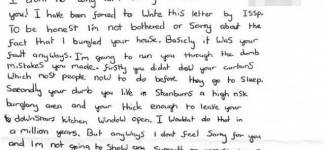 you! I have been forced to write this letter by ISSP.
To be honest I'm not bothered or sorry about the
fact that I burgled your house. Basicly it was your
fault anyways. I'm going to run you through the dumb
mistakes you made. firstly you didnt draw your curtains
which most people now to do before they go to sleep.
Secondly your dumb you live in Stanburn a high risk
burglary area and your thick enough to leave your
downstairs kitchen window open. I wouldnt do that in
a million years. But anyways I dont feel sorry for you
and I'm not going to show any